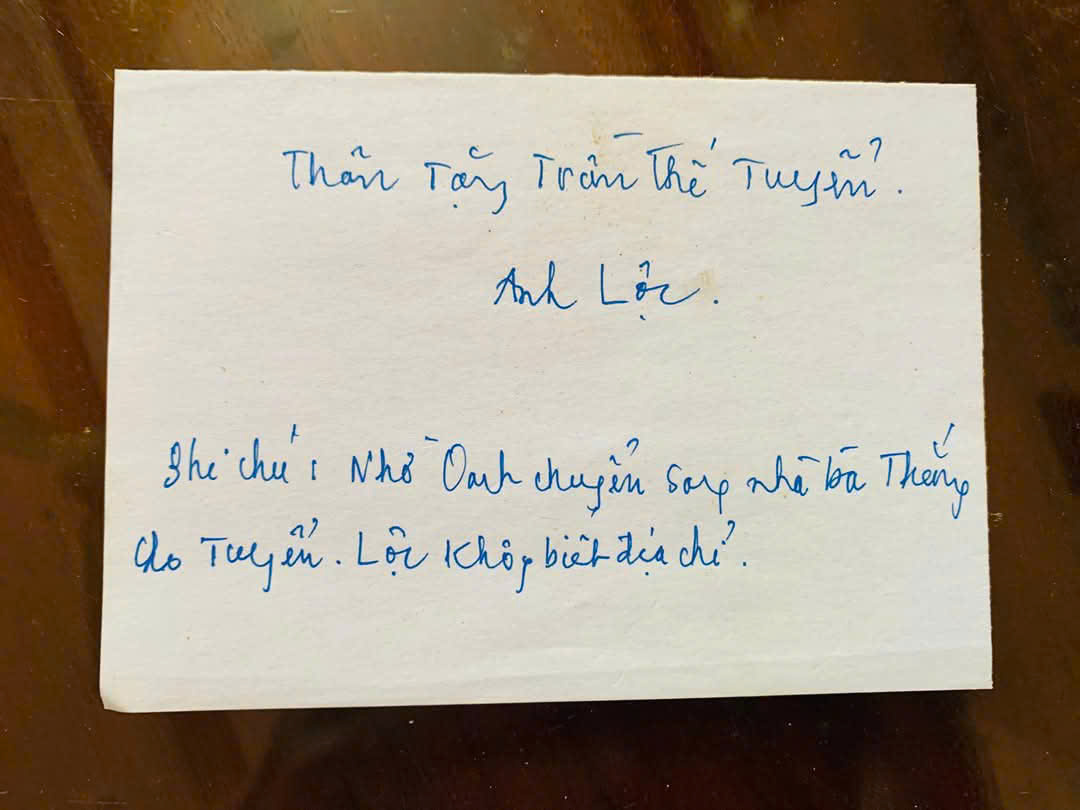 Thân Tặng Trần Thế Tuyển.
Anh Lộc.
Ghi chú: Nhờ Oanh chuyển sang nhà bà Thắng
cho Tuyển. Lộc không biết địa chỉ.